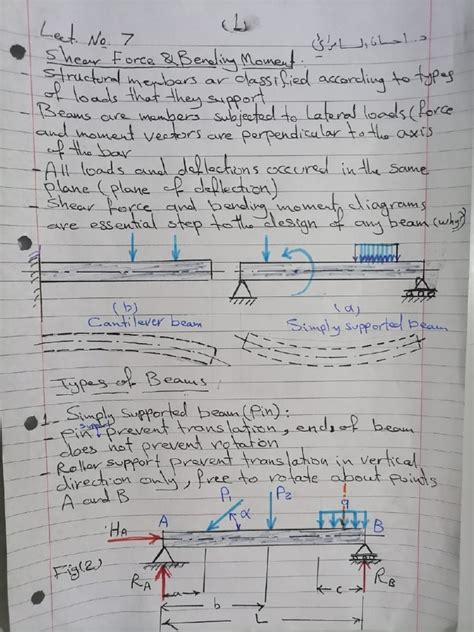 (1)
Lect. No. 7
Shear Force & Bending Moment.
- Structural members ar classified according to types
of loads that they support
- Beams are members subjected to Lateral loads (force
and moment vectors are perpendicular to the axis
of the bar
- All loads and deflections occured in the same
plane (plane of deflection)
- Shear force and bending moment diagrams
are essential step to the design of any beam (why?)
(b)
Cantilever beam
(a)
Simply supported beam
Types of Beams
1- Simply supported beam (pin):
- pin support prevent translation, ends of beam
does not prevent rotation
- Roller support prevent translation in vertical
direction only, free to rotate about points
A and B
HA
A
P1
α
P2
q
B
Fig(2)
RA
a
b
c
L
RB